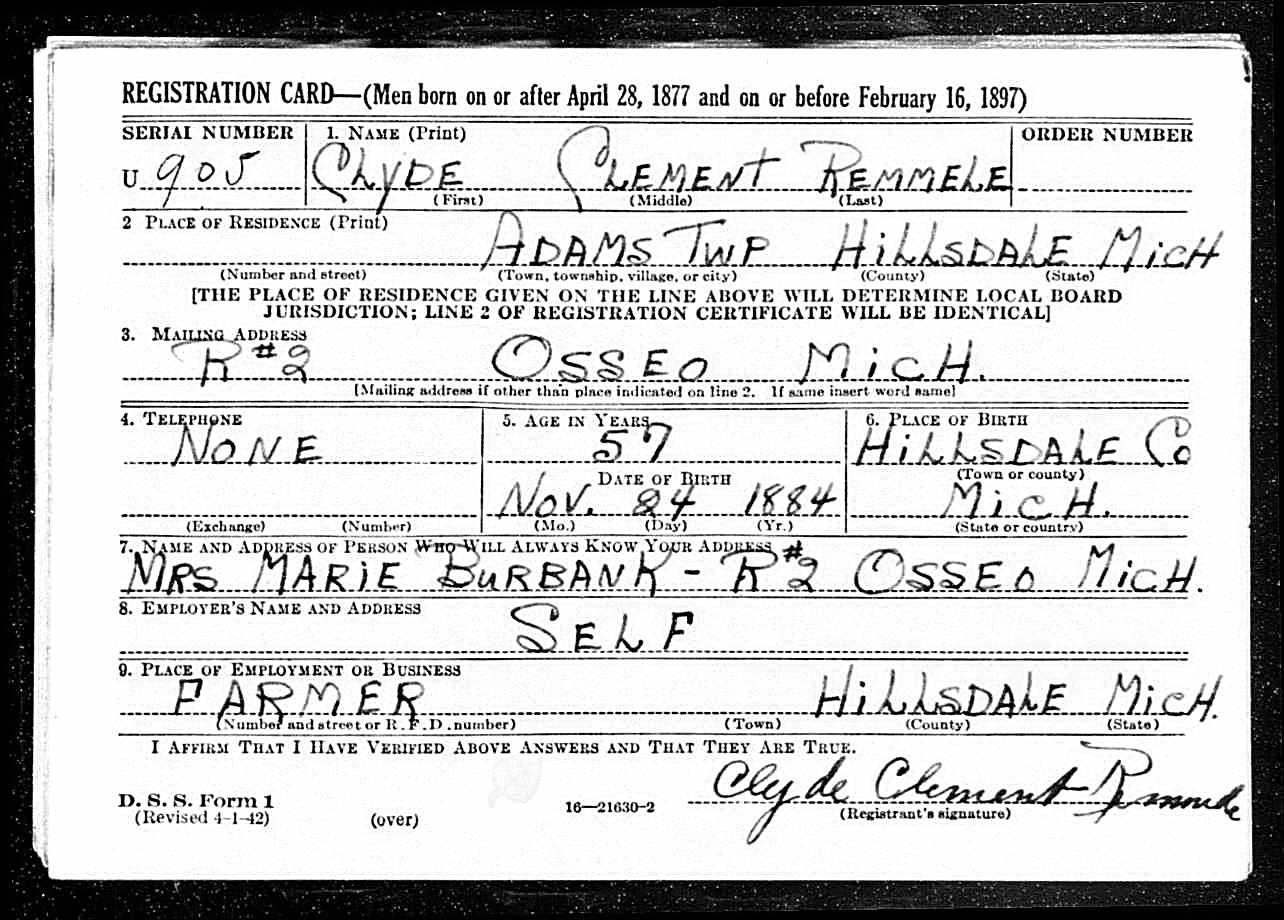 REGISTRATION CARD—(Men born on or after April 28, 1877 and on or before February 16, 1897)
SERIAL NUMBER 1. NAME (Print) ORDER NUMBER
U 905 CLYDE CLEMENT REMMELE
(First) (Middle) (Last)
2 PLACE OF RESIDENCE (Print)
ADAMS TWP HiLLSDALE MicH
(Number and street) (Town, township, village, or city) (County) (State)
[THE PLACE OF RESIDENCE GIVEN ON THE LINE ABOVE WILL DETERMINE LOCAL BOARD
JURISDICTION; LINE 2 OF REGISTRATION CERTIFICATE WILL BE IDENTICAL]
3. MAILING ADDRESS
R #2 OSSEO MicH.
[Mailing address if other than place indicated on line 2. If same insert word same]
4. TELEPHONE 5. AGE IN YEARS 6. PLACE OF BIRTH
NONE 57 HiLLSDALE Co
DATE OF BIRTH (Town or county)
Nov. 24 1884 MicH.
(Exchange) (Number) (Mo.) (Day) (Yr.) (State or country)
7. NAME AND ADDRESS OF PERSON WHO WILL ALWAYS KNOW YOUR ADDRESS
MRS MARiE BURBANK - R #2 OSSEO MicH.
8. EMPLOYER'S NAME AND ADDRESS
SELF
9. PLACE OF EMPLOYMENT OR BUSINESS
FARMER HiLLSDALE MicH.
(Number and street or R. F. D. number) (Town) (County) (State)
I AFFIRM THAT I HAVE VERIFIED ABOVE ANSWERS AND THAT THEY ARE TRUE.
Clyde Clement Remmele
D. S. S. Form 1 16—21630-2 (Registrant's signature)
(Revised 4-1-42) (over)